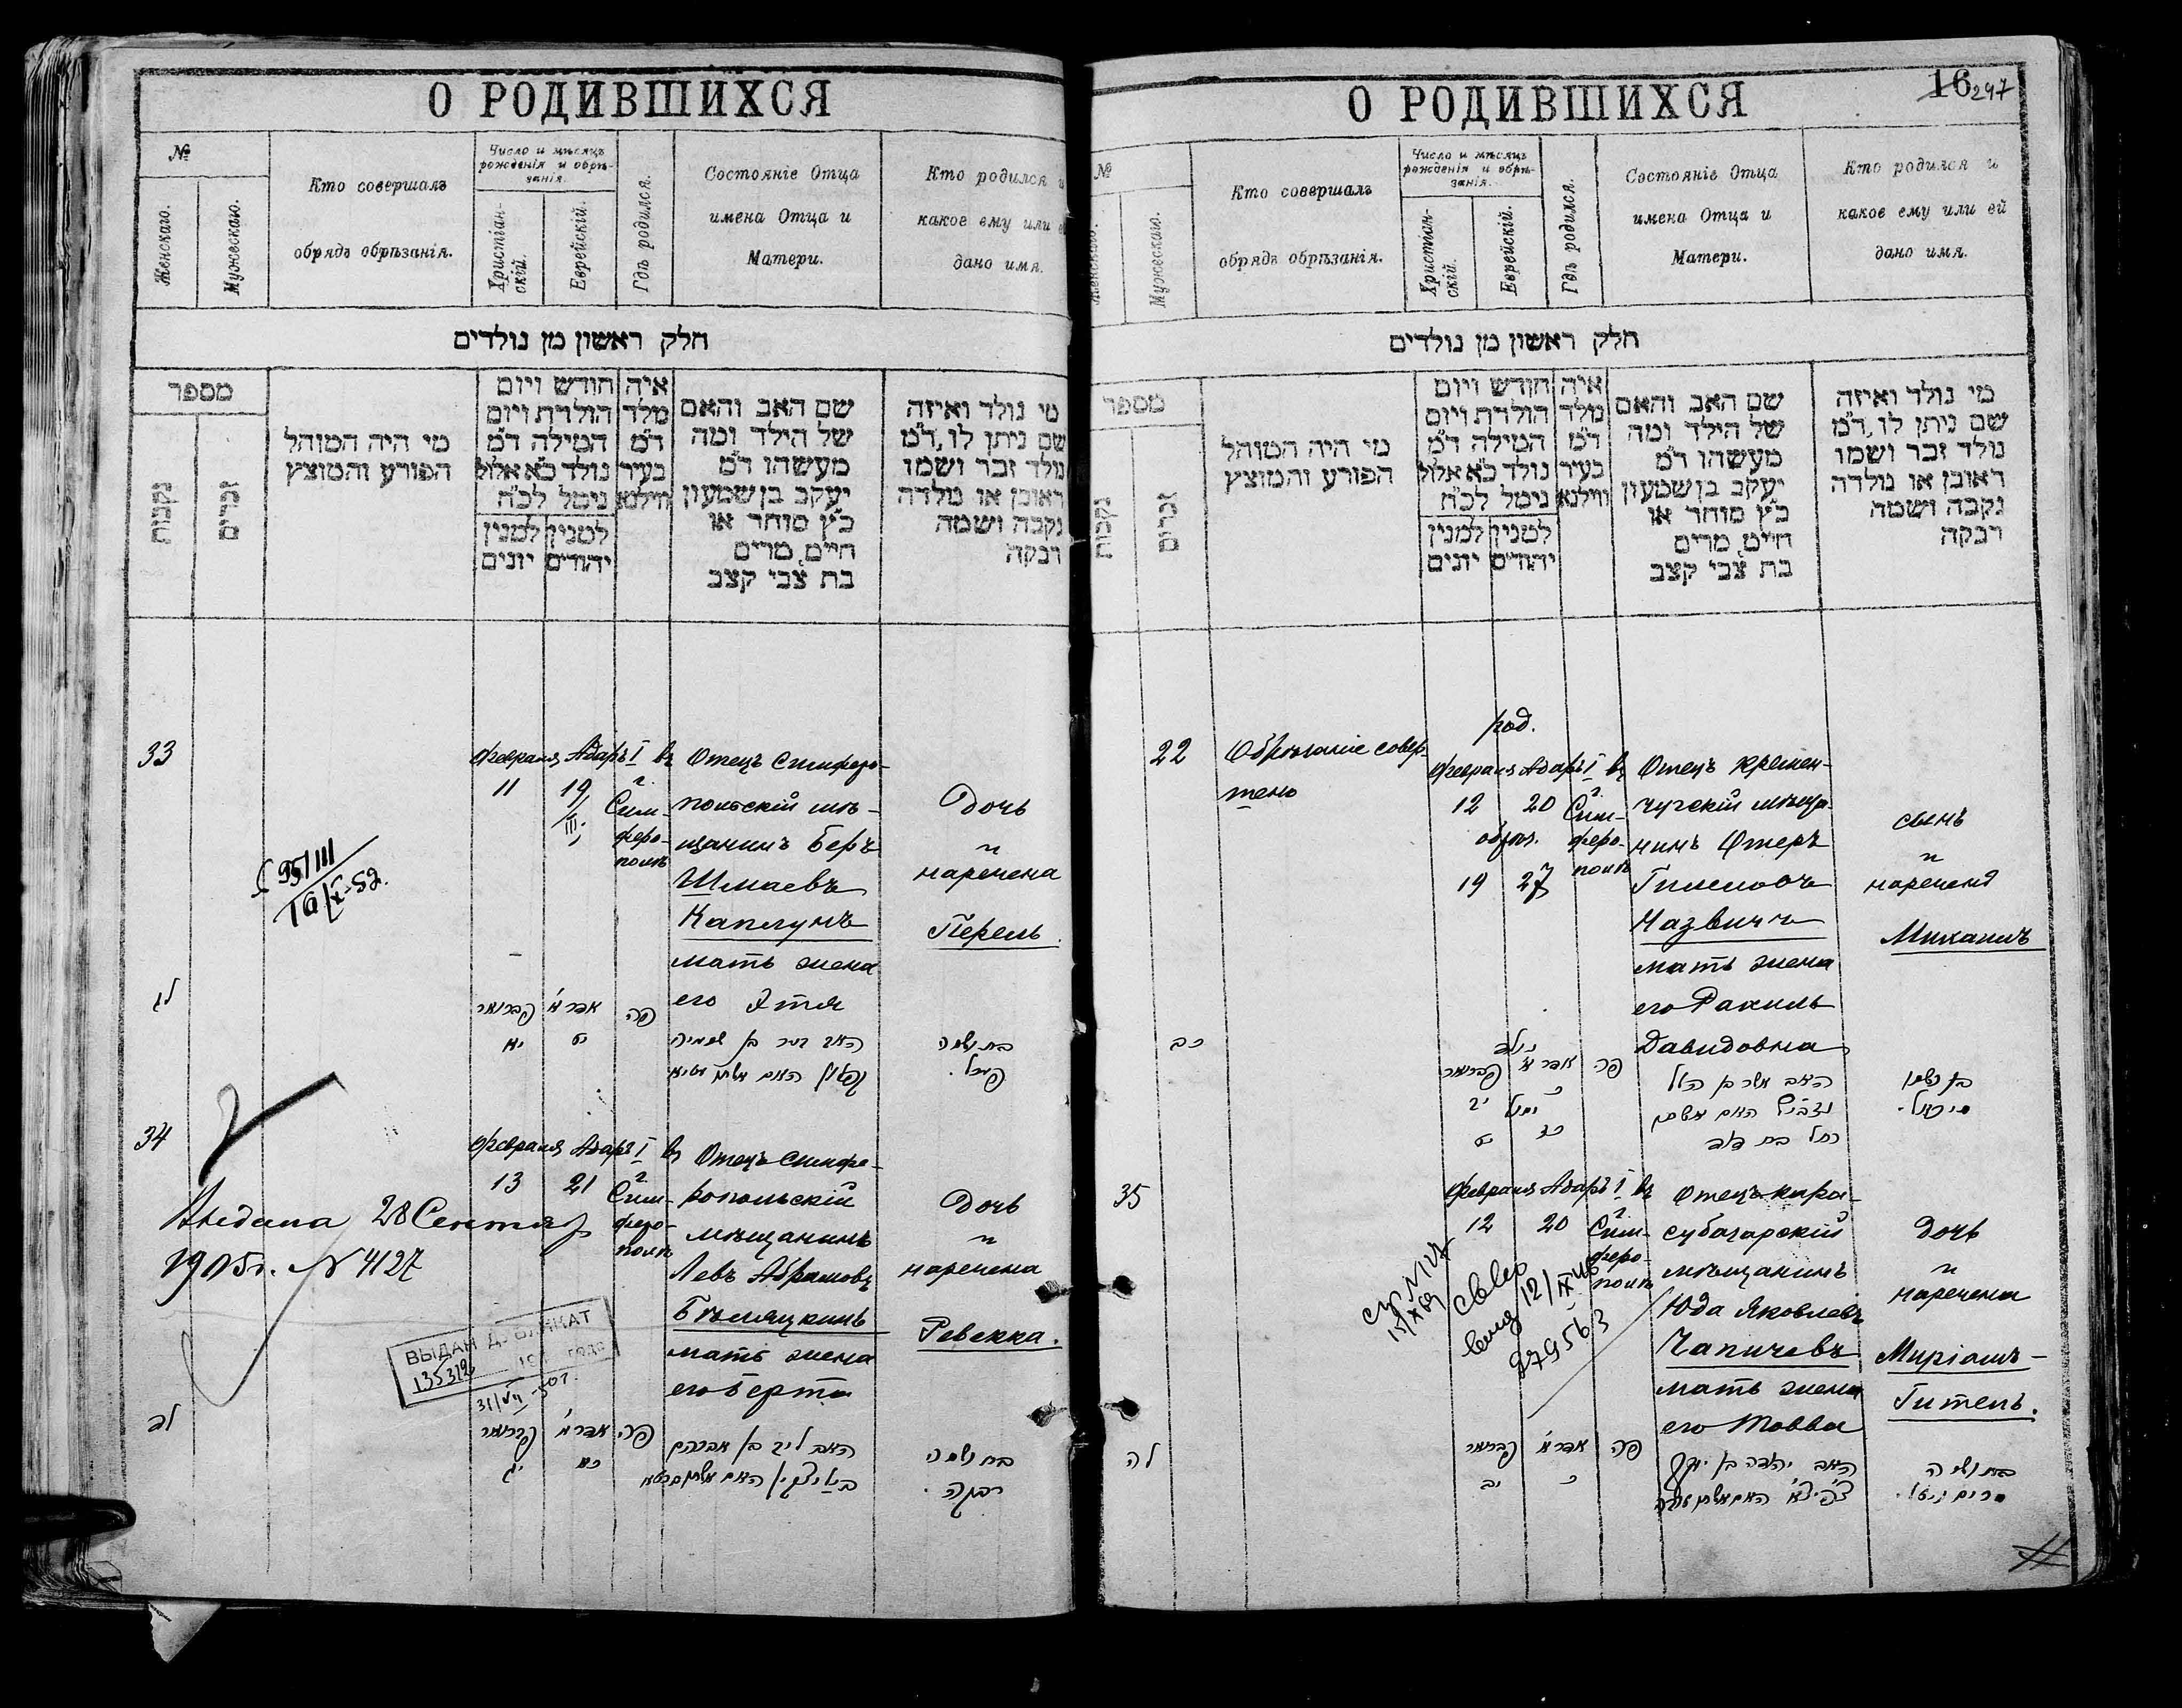 О РОДИВШИХСЯ
№
Женскаго.
Мужескаго.
Кто совершалъ
обрядъ обрѣзанія.
Число и мѣсяцъ
рожденія и обрѣ-
занія.
Христіан-
скій.
Еврейскій.
Гдѣ родился.
Состояніе Отца
имена Отца и
Матери.
Кто родился и
какое ему или
дано имя.
חלק ראשון מן נולדים
מספר
נקבות
זכרים
מי היה המוהל
הפורע והמוצץ
חודש ויום
הולדת ויום
המילה ד״מ
נולד כ״א אלול
נימל לכ״ח
למנין למנין
יהודים יונים
איה
מלד
ד״מ
בעיר
ווילנא
שם האב והאם
של הילד ומה
מעשהו ד״מ
יעקב בן שמעון
כ״ץ סוחר או
חיים, מרים
בת צבי קצב
מי נולד ואיזה
שם ניתן לו, ד״מ
נולד זכר ושמו
ראובן או נולדה
נקבה ושמה
רבקה
33
Февраля Адаръ I въ
11 19
/III.
г.
Сим-
феро-
полѣ
Отецъ Симферо-
польскій мѣ-
щанинъ Беръ
Шмаевъ
Каплунъ
мать жена
его Этля
Дочь
и
наречена
Перель.
לג
פברואר אדר א׳ פה
יא יט
האב בער בן שמעיה
קאפלון האם אשתו עטיא
בת ושמה
פערל.
34
Февраля Адаръ I въ
13 21
г.
Сим-
феро-
полѣ
Отецъ Симфе-
ропольскій
мѣщанинъ
Левъ Абрамовъ
Бѣляцкинъ
мать жена
его Берта
Дочь
и
наречена
Ревекка.
Выдана 28 Сентяб
1905г. № 4127
ВЫДАН ДУБЛИКАТ
31/VII-50г.
לד
פברואר אדר א׳ פה
יג כא
האב ליב בן אברהם
בת ושמה
רבקה.
О РОДИВШИХСЯ
16 247
№
Женскаго.
Мужескаго.
Кто совершалъ
обрядъ обрѣзанія.
Число и мѣсяцъ
рожденія и обрѣ-
занія.
Христіан-
скій.
Еврейскій.
Гдѣ родился.
Состояніе Отца
имена Отца и
Матери.
Кто родился и
какое ему или ей
дано имя.
חלק ראשון מן נולדים
מספר
נקבות
זכרים
מי היה המוהל
הפורע והמוצץ
חודש ויום
הולדת ויום
המילה ד״מ
נולד כ״א אלול
נימל לכ״ח
למנין למנין
יהודים יונים
איה
מלד
ד״מ
בעיר
ווילנא
שם האב והאם
של הילד ומה
מעשהו ד״מ
יעקב בן שמעון
כ״ץ סוחר או
חיים, מרים
בת צבי קצב
מי נולד ואיזה
שם ניתן לו, ד״מ
נולד זכר ושמו
ראובן או נולדה
נקבה ושמה
רבקה
22
Обрѣзаніе совер-
шено
род.
Февраля Адаръ I въ
12 20
обрѣз.
19 27
г.
Сим-
феро-
полѣ
Отецъ Кремен-
чугскій мѣща-
нинъ Ошеръ
Гилеловъ
Назвичъ
мать жена
его Рахиль
Давидовна
сынъ
и
нареченъ
Михаилъ
כב
נולד
פברואר אדר א׳ פה
יב כ
נימול
יט כז
האב אשר בן הלל
האם אשתו
רחל בת דוד
בן ושמו
מיכאל.
35
Февраля Адаръ I въ
12 20
г.
Сим-
феро-
полѣ
Отецъ Кара-
субазарскій
мѣщанинъ
Юда Яковлевъ
Чапичевъ
мать жена
его Товва
Дочь
и
наречена
Миріамъ-
Гитель.
279563
לה
פברואר אדר א׳ פה
יב כ
האב יהודה בן יעקב
בת ושמה
מרים גיטל.